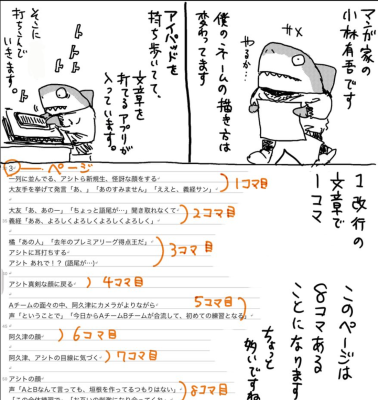 マンガ家の
小林有吾です
ザッ
やるか…
僕のネームの描き方は
変わってます
アイパッドを
持ち歩いてて、
文章を
打てるアプリが
入っています。
そこに
打ちこんで
いきます。
1改行の
文章で
1コマ
このページは
8コマある
ことになります
ちょっと
多いですね
3 ページ
一列に並んでる、アシトら新規生、怪訝な顔をする
大友手を挙げて発言「あ、」「あのすみません」「ええと、義経サン」
1コマ目
大友「あ、あのー」「ちょっと語尾が…」聞き取れなくて
義経「ああ、よろしくよろしくよろしくよろしく」
2コマ目
橘「あの人」「去年のプレミアリーグ得点王だ」
アシトに耳打ちする
アシト あれで!?(語尾が…)
3コマ目
アシト真剣な顔に戻る
4コマ目
Aチームの面々の中、阿久津にカメラがよりながら
声「ということで」「今日からAチームBチームが合流して、初めての練習となる」
5コマ目
阿久津の顔
6コマ目
阿久津、アシトの目線に気づく
7コマ目
アシトの顔
声「AとBなんて言っても、垣根を作ってるつもりはない」
8コマ目